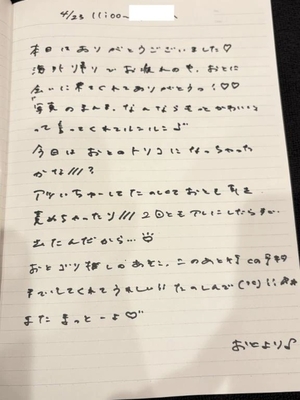 4/23 11:00~
本日はありがとうございました♡
海外帰りでお疲れの中、おとに
会いに来てくれてありがとうっ!♡♡
写真のまんま、なんならもっとかわいい
って言ってくれてルンルン♪
今日はおとのトリコになっちゃった
かな///?
アツいちゅーしてたのしくておとも
責めちゃったり/// 2回とも
出たんだから…
おとゴリ推しの このあと
してくれてうれしい!! たのしんで
また まっとーよ♡
おとより♪